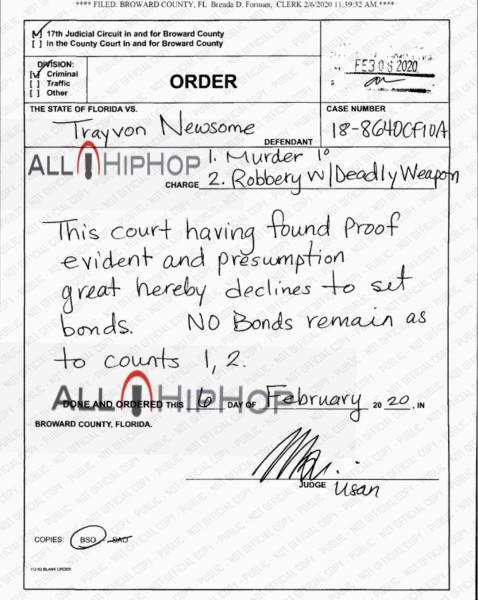 **** FILED: BROWARD COUNTY, FL Brenda D. Forman, CLERK 2/6/2020 11:39:32 AM.****
[✓] 17th Judicial Circuit in and for Broward County
[ ] In the County Court in and for Broward County
DIVISION:
[✓] Criminal
[ ] Traffic
[ ] Other
ORDER
FEB 06 2020
THE STATE OF FLORIDA VS.
CASE NUMBER
Trayvon Newsome
DEFENDANT
18-8640CF10A
ALLHIPHOP
1. Murder 1°
CHARGE 2. Robbery W/Deadly Weapon
This court having found Proof
evident and presumption
great hereby declines to set
bonds. NO Bonds remain as
to counts 1, 2.
ALLHIPHOP
DONE AND ORDERED THIS 6 DAY OF February 20 20, IN
BROWARD COUNTY, FLORIDA.
JUDGE Usan
COPIES: BSO SAO
112-92 BLANK ORDER